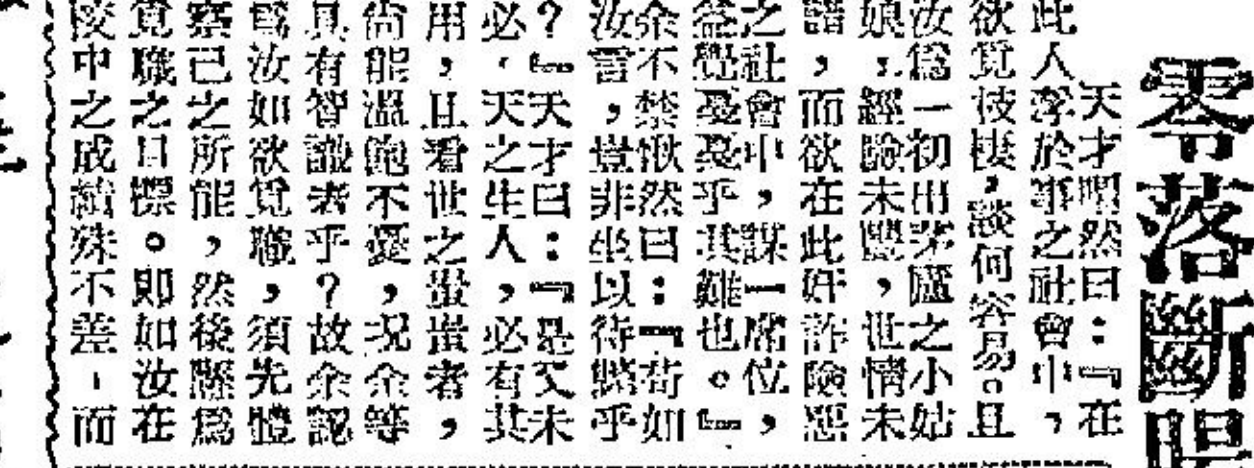 零落斷腸
天才喟然曰：『在
此人浮於事之社會中，
欲覓枝棲，談何容易。且
汝爲一初出茅廬之小姑
娘，經驗未豐，世情未
諳，而欲在此奸詐險惡
之社會中，謀一席位，
益覺戛戛乎其難也。』
余不禁愀然曰：『苟如
汝言，豈非坐以待斃乎
？』天才曰：『是又未
必。天之生人，必有其
用，且看世之蚩蚩者，
尙能溫飽不憂，况余等
具有智識者乎？故余認
爲汝如欲覓職，須先體
察己之所能，然後懸爲
覓職之目標。卽如汝在
校中之成績殊不差，而